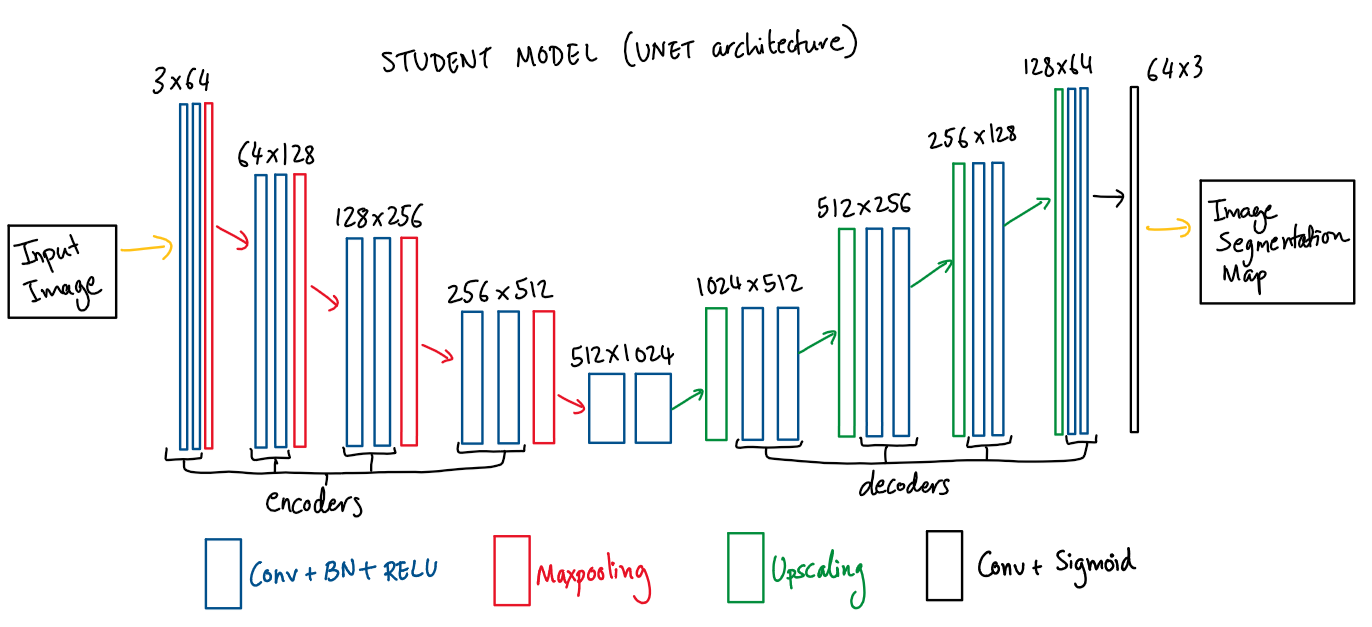 STUDENT MODEL (UNET architecture)
3x64
64x128
128x256
256x512
512x1024
1024x512
512x256
256x128
128x64
64x3
Input
Image
Image
Segmentation
Map
encoders
decoders
Conv + BN + RELU
Maxpooling
Upscaling
Conv + Sigmoid